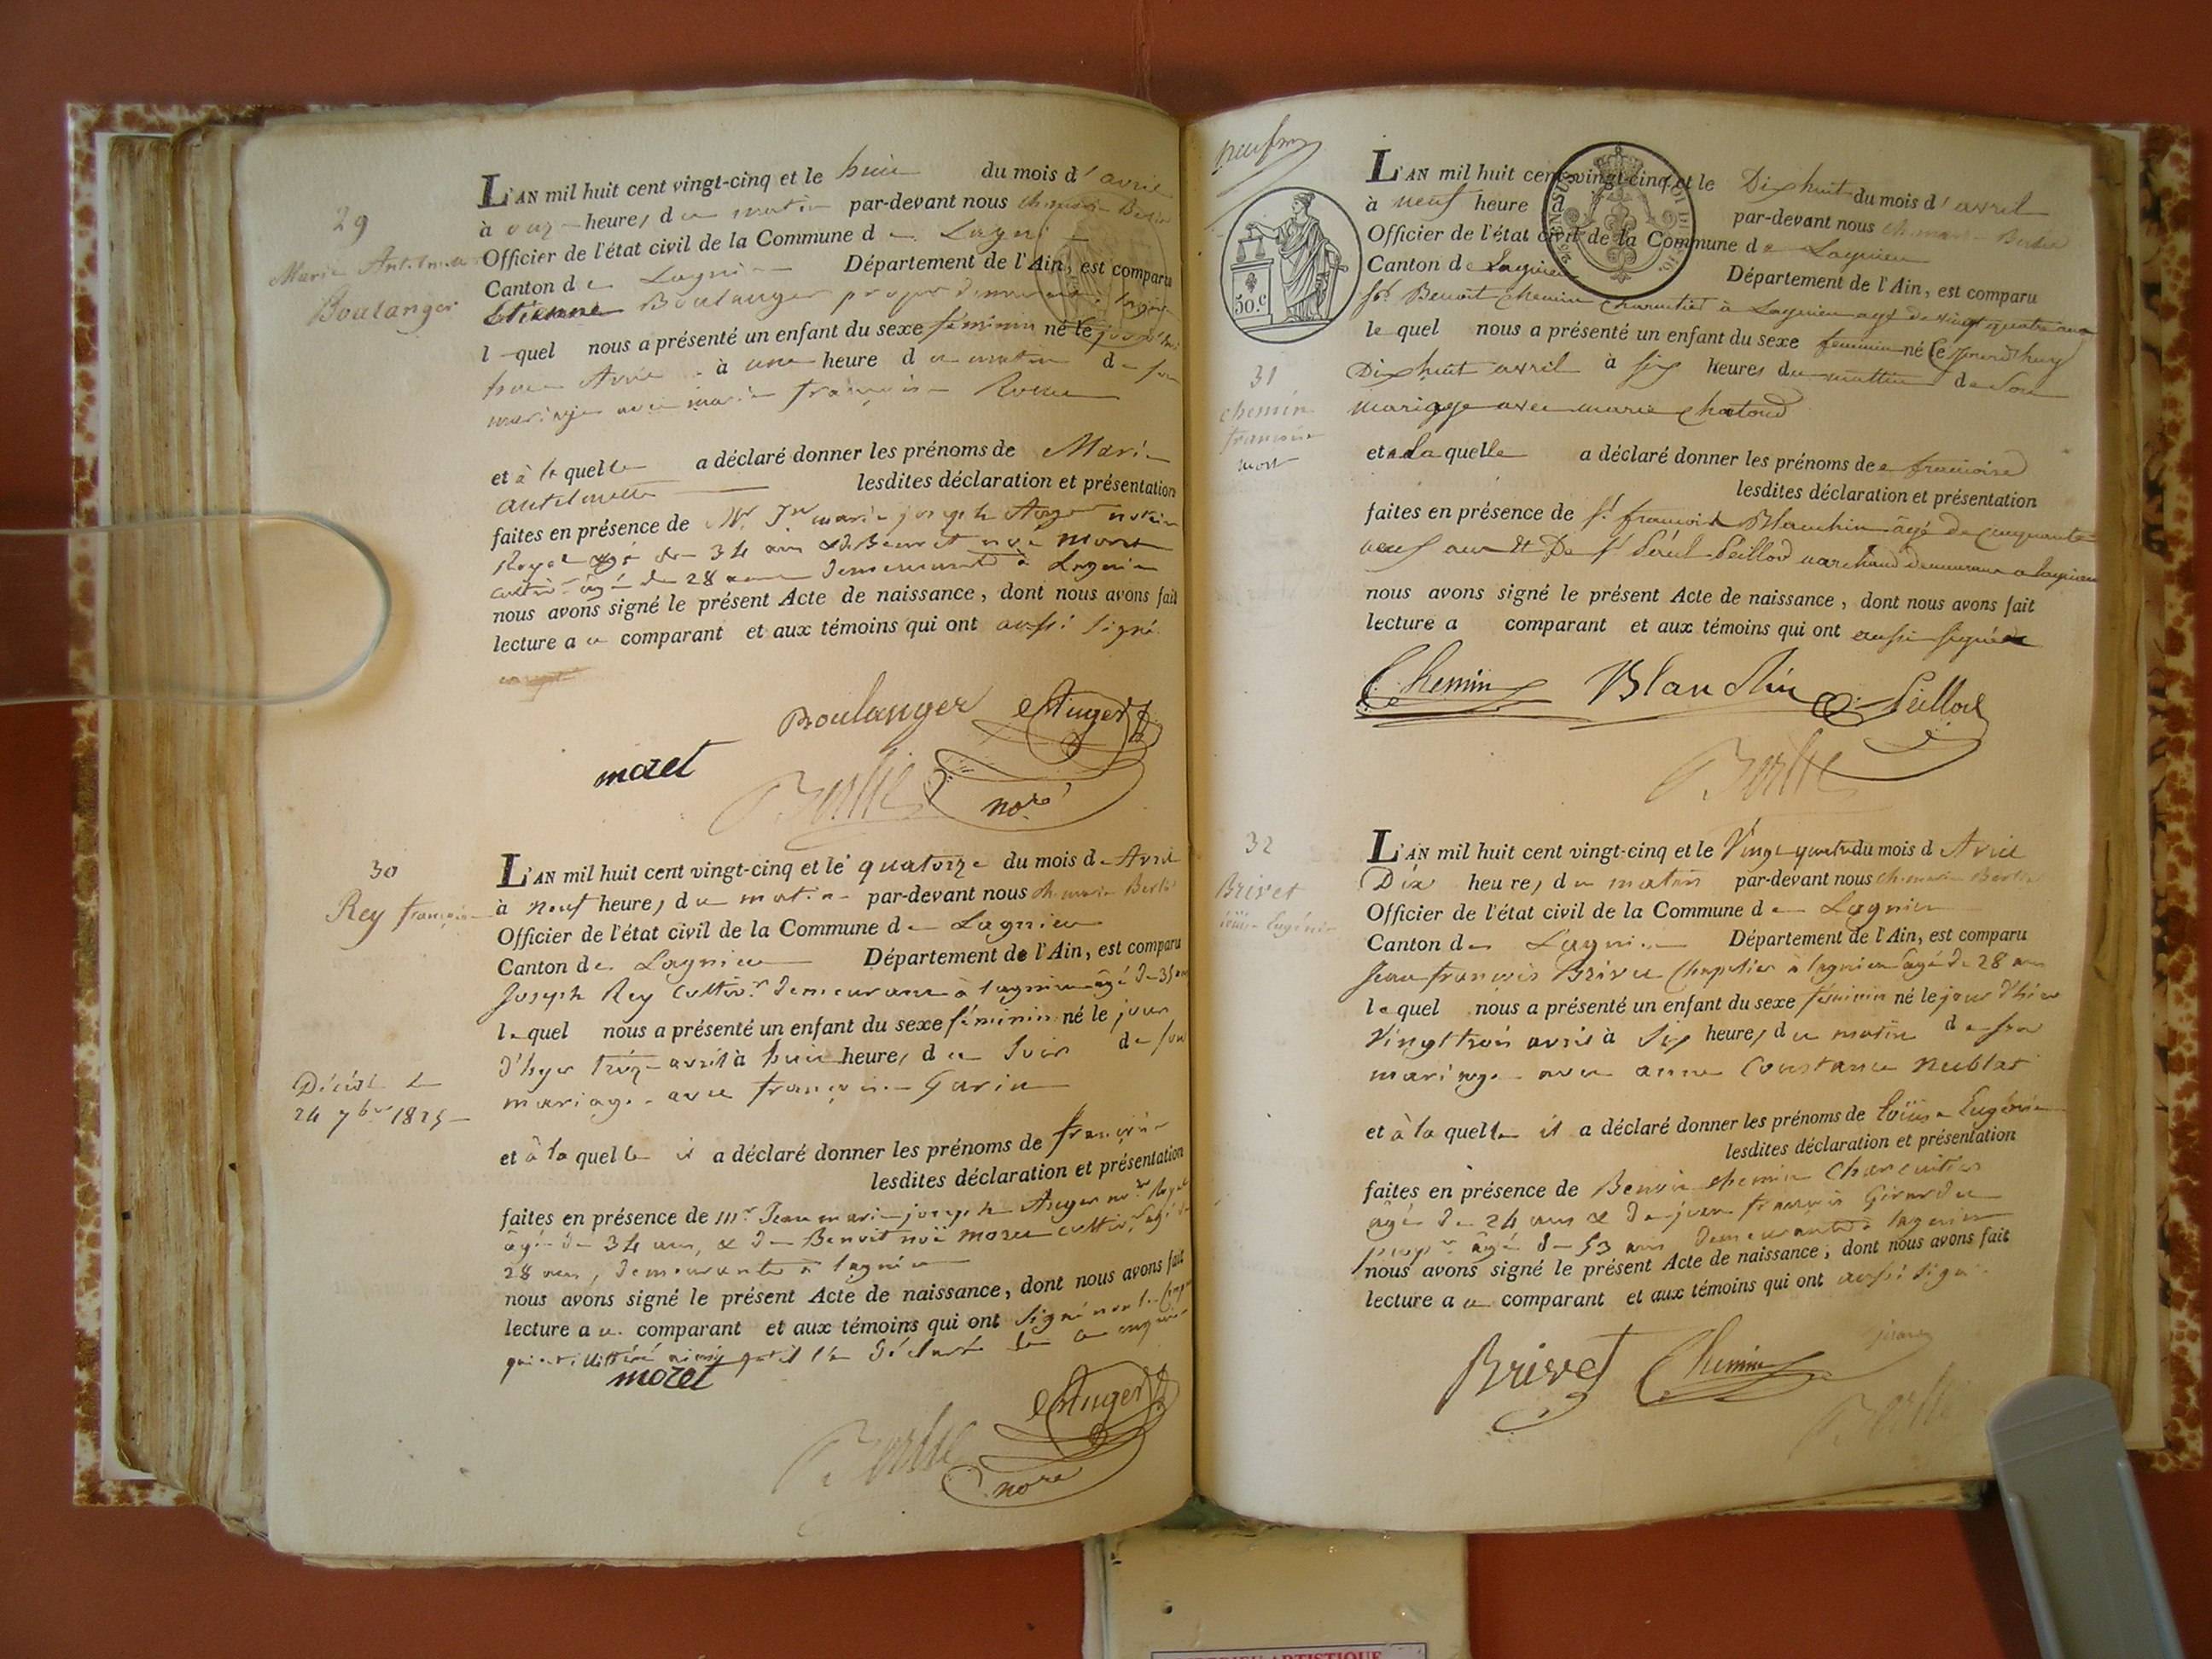 29
Marie Antelmette
Boulanger
L'AN mil huit cent vingt-cinq et le huit du mois d'avril
à onze heures du matin par-devant nous
Officier de l'état civil de la Commune de Lagnieu
Canton de Lagnieu Département de l'Ain, est comparu
Etienne Boulanger
lequel nous a présenté un enfant du sexe féminin né le jourd'hui
huit Avril à une heure du matin de son
mariage avec marie françoise
et à laquelle a déclaré donner les prénoms de Marie
antelmette lesdites déclaration et présentation
faites en présence de Mr Jn marie joseph Auger notaire
Royal agé de 34 ans & de Benoit noé Moret
cultivr âgé de 28 ans demeurants à Lagnieu
nous avons signé le présent Acte de naissance, dont nous avons fait
lecture au comparant et aux témoins qui ont aussi signé
Boulanger Auger
moret
Berlie nore
30
Rey françoise
Décédé le
24 7bre 1825
L'AN mil huit cent vingt-cinq et le quatorze du mois de Avril
à neuf heures du matin par-devant nous
Officier de l'état civil de la Commune de Lagnieu
Canton de Lagnieu Département de l'Ain, est comparu
Joseph Rey cultivr demeurant à lagnieu âgé de 35 ans
lequel nous a présenté un enfant du sexe féminin né le jour
d'hyer treize avril à huit heures du soir de son
mariage avec françoise Garin
et à laquelle il a déclaré donner les prénoms de françoise
lesdites déclaration et présentation
faites en présence de mr Jean marie joseph Auger nore Royal
âgé de 34 ans, & de Benoit noë moret cultivr agé de
28 ans, demeurants à lagnieu
nous avons signé le présent Acte de naissance, dont nous avons fait
lecture au comparant et aux témoins qui ont signé non le
qui est illitéré ainsi qu'il l'a déclaré de ce enquis
moret
Auger
Berlie
nore
50.c
L'AN mil huit cent vingt-cinq et le Dix huit du mois d'avril
à neuf heure par-devant nous
Officier de l'état civil de la Commune de Lagnieu
Canton de Lagnieu Département de l'Ain, est comparu
sr Benoit chemin charcutier à Lagnieu agé de vingt quatre ans
le quel nous a présenté un enfant du sexe feminin né le jourd'huy
Dix huit avril à six heures du mattin de son
mariage avec marie chatoud
31
chemin
francoise
mort
et a la quelle a déclaré donner les prénoms de francoise
lesdites déclaration et présentation
faites en présence de sr francois Blanchin âgé de cinquante
neuf ans et De sr Paul Peillod marchand demeurant a lagnieu
nous avons signé le présent Acte de naissance, dont nous avons fait
lecture a comparant et aux témoins qui ont aussi signé
Chemin Blanchin Peillod
Berlie
32
Brivet
loüise Eugénie
L'AN mil huit cent vingt-cinq et le Vingt quatre du mois d Avril
Dix heures du matin par-devant nous
Officier de l'état civil de la Commune de Lagnieu
Canton de Lagnieu Département de l'Ain, est comparu
Jean françois Brivet Chapelier à lagnieu âgé de 28 ans
lequel nous a présenté un enfant du sexe féminin né le jour d'hier
Vingt trois avril à six heures du matin de son
mariage avec anne Constance nublat
et à la quelle il a déclaré donner les prénoms de loüise Eugénie
lesdites déclaration et présentation
faites en présence de Benoit chemin Charcutier
âgé de 24 ans & de jean françois Girardet
propre âgé de 53 ans demeurants à lagnieu
nous avons signé le présent Acte de naissance; dont nous avons fait
lecture au comparant et aux témoins qui ont aussi signé
Brivet Chemin
Berlie
ARTISTIQUE